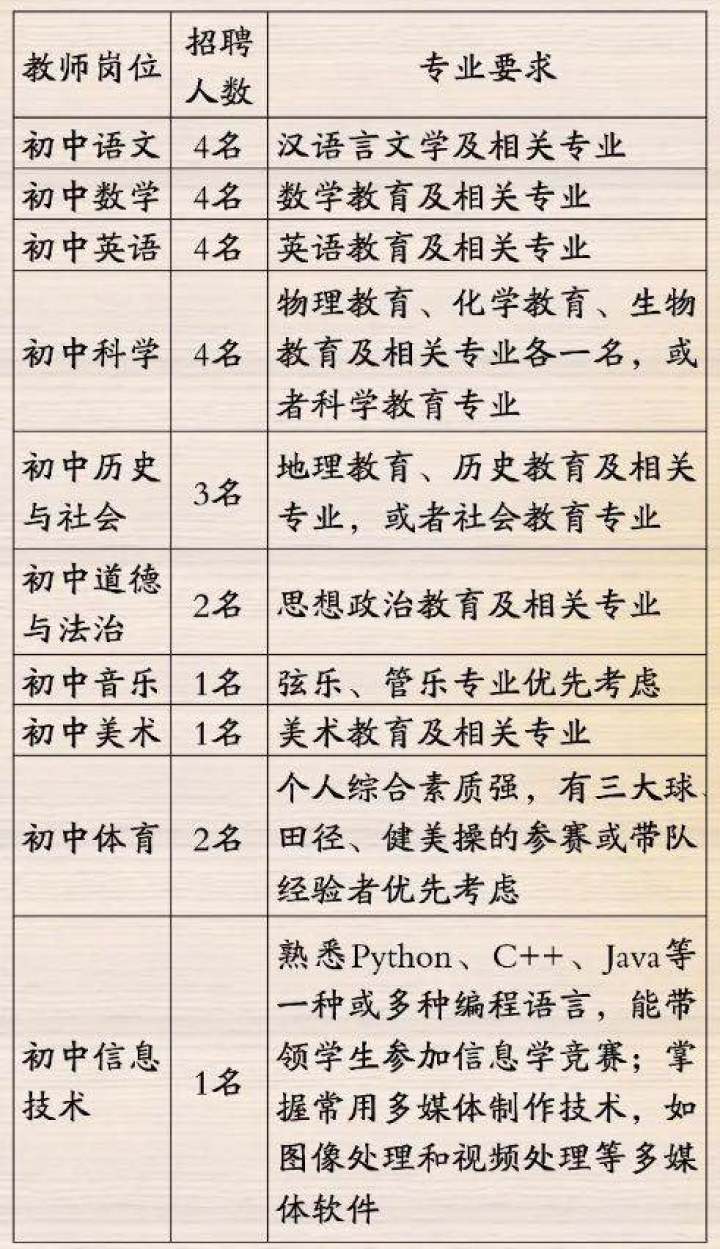 教师岗位 招聘人数 专业要求
初中语文 4名 汉语言文学及相关专业
初中数学 4名 数学教育及相关专业
初中英语 4名 英语教育及相关专业
初中科学 4名 物理教育、化学教育、生物
教育及相关专业各一名，或
者科学教育专业
初中历史
与社会 3名 地理教育、历史教育及相关
专业，或者社会教育专业
初中道德
与法治 2名 思想政治教育及相关专业
初中音乐 1名 弦乐、管乐专业优先考虑
初中美术 1名 美术教育及相关专业
初中体育 2名 个人综合素质强，有三大球、
田径、健美操的参赛或带队
经验者优先考虑
初中信息
技术 1名 熟悉Python、C++、Java等
一种或多种编程语言，能带
领学生参加信息学竞赛；掌
握常用多媒体制作技术，如
图像处理和视频处理等多媒
体软件